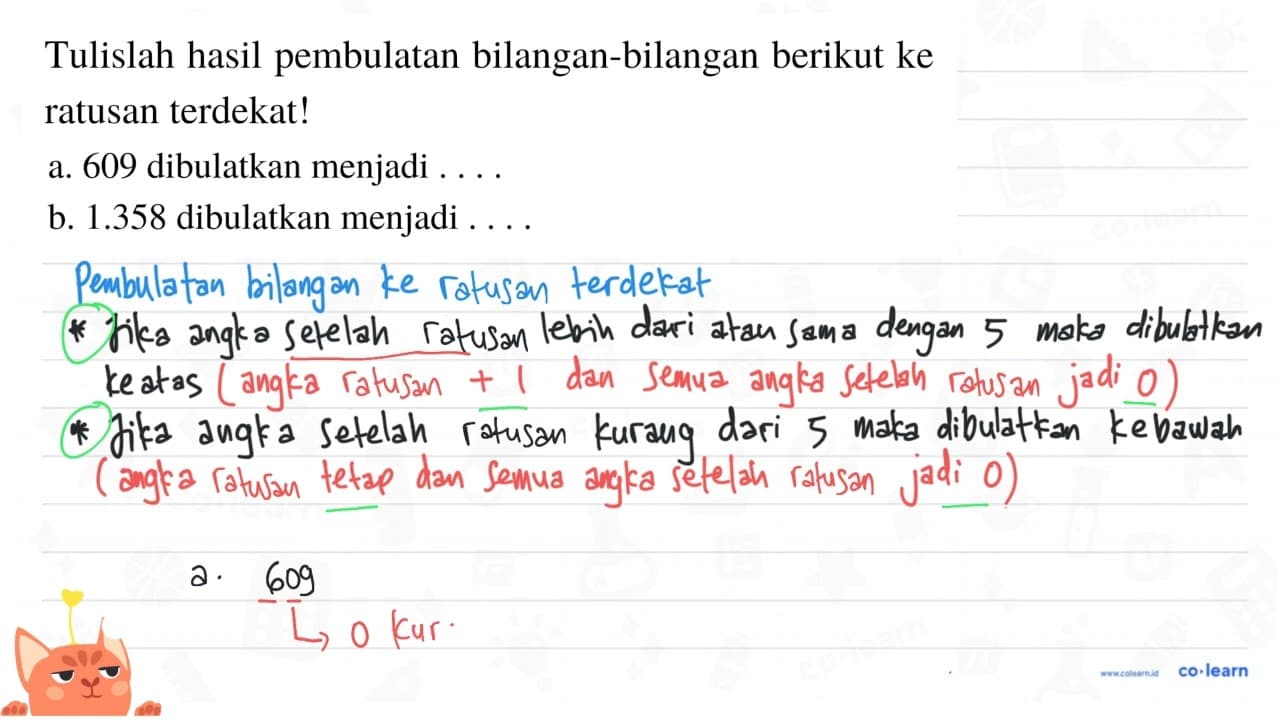 Tulislah hasil pembulatan bilangan-bilangan berikut ke
ratusan terdekat!
a. 609 dibulatkan menjadi . . . .
b. 1.358 dibulatkan menjadi . . . .
Pembulatan bilangan ke ratusan terdekat
* Jika angka setelah ratusan lebih dari atau sama dengan 5 maka dibulatkan
keatas (angka ratusan + 1 dan semua angka setelah ratusan jadi 0)
* Jika angka setelah ratusan kurang dari 5 maka dibulatkan kebawah
(angka ratusan tetap dan semua angka setelah ratusan jadi 0)
a. 609
↳ 0 kur.
www.colearn.id co·learn